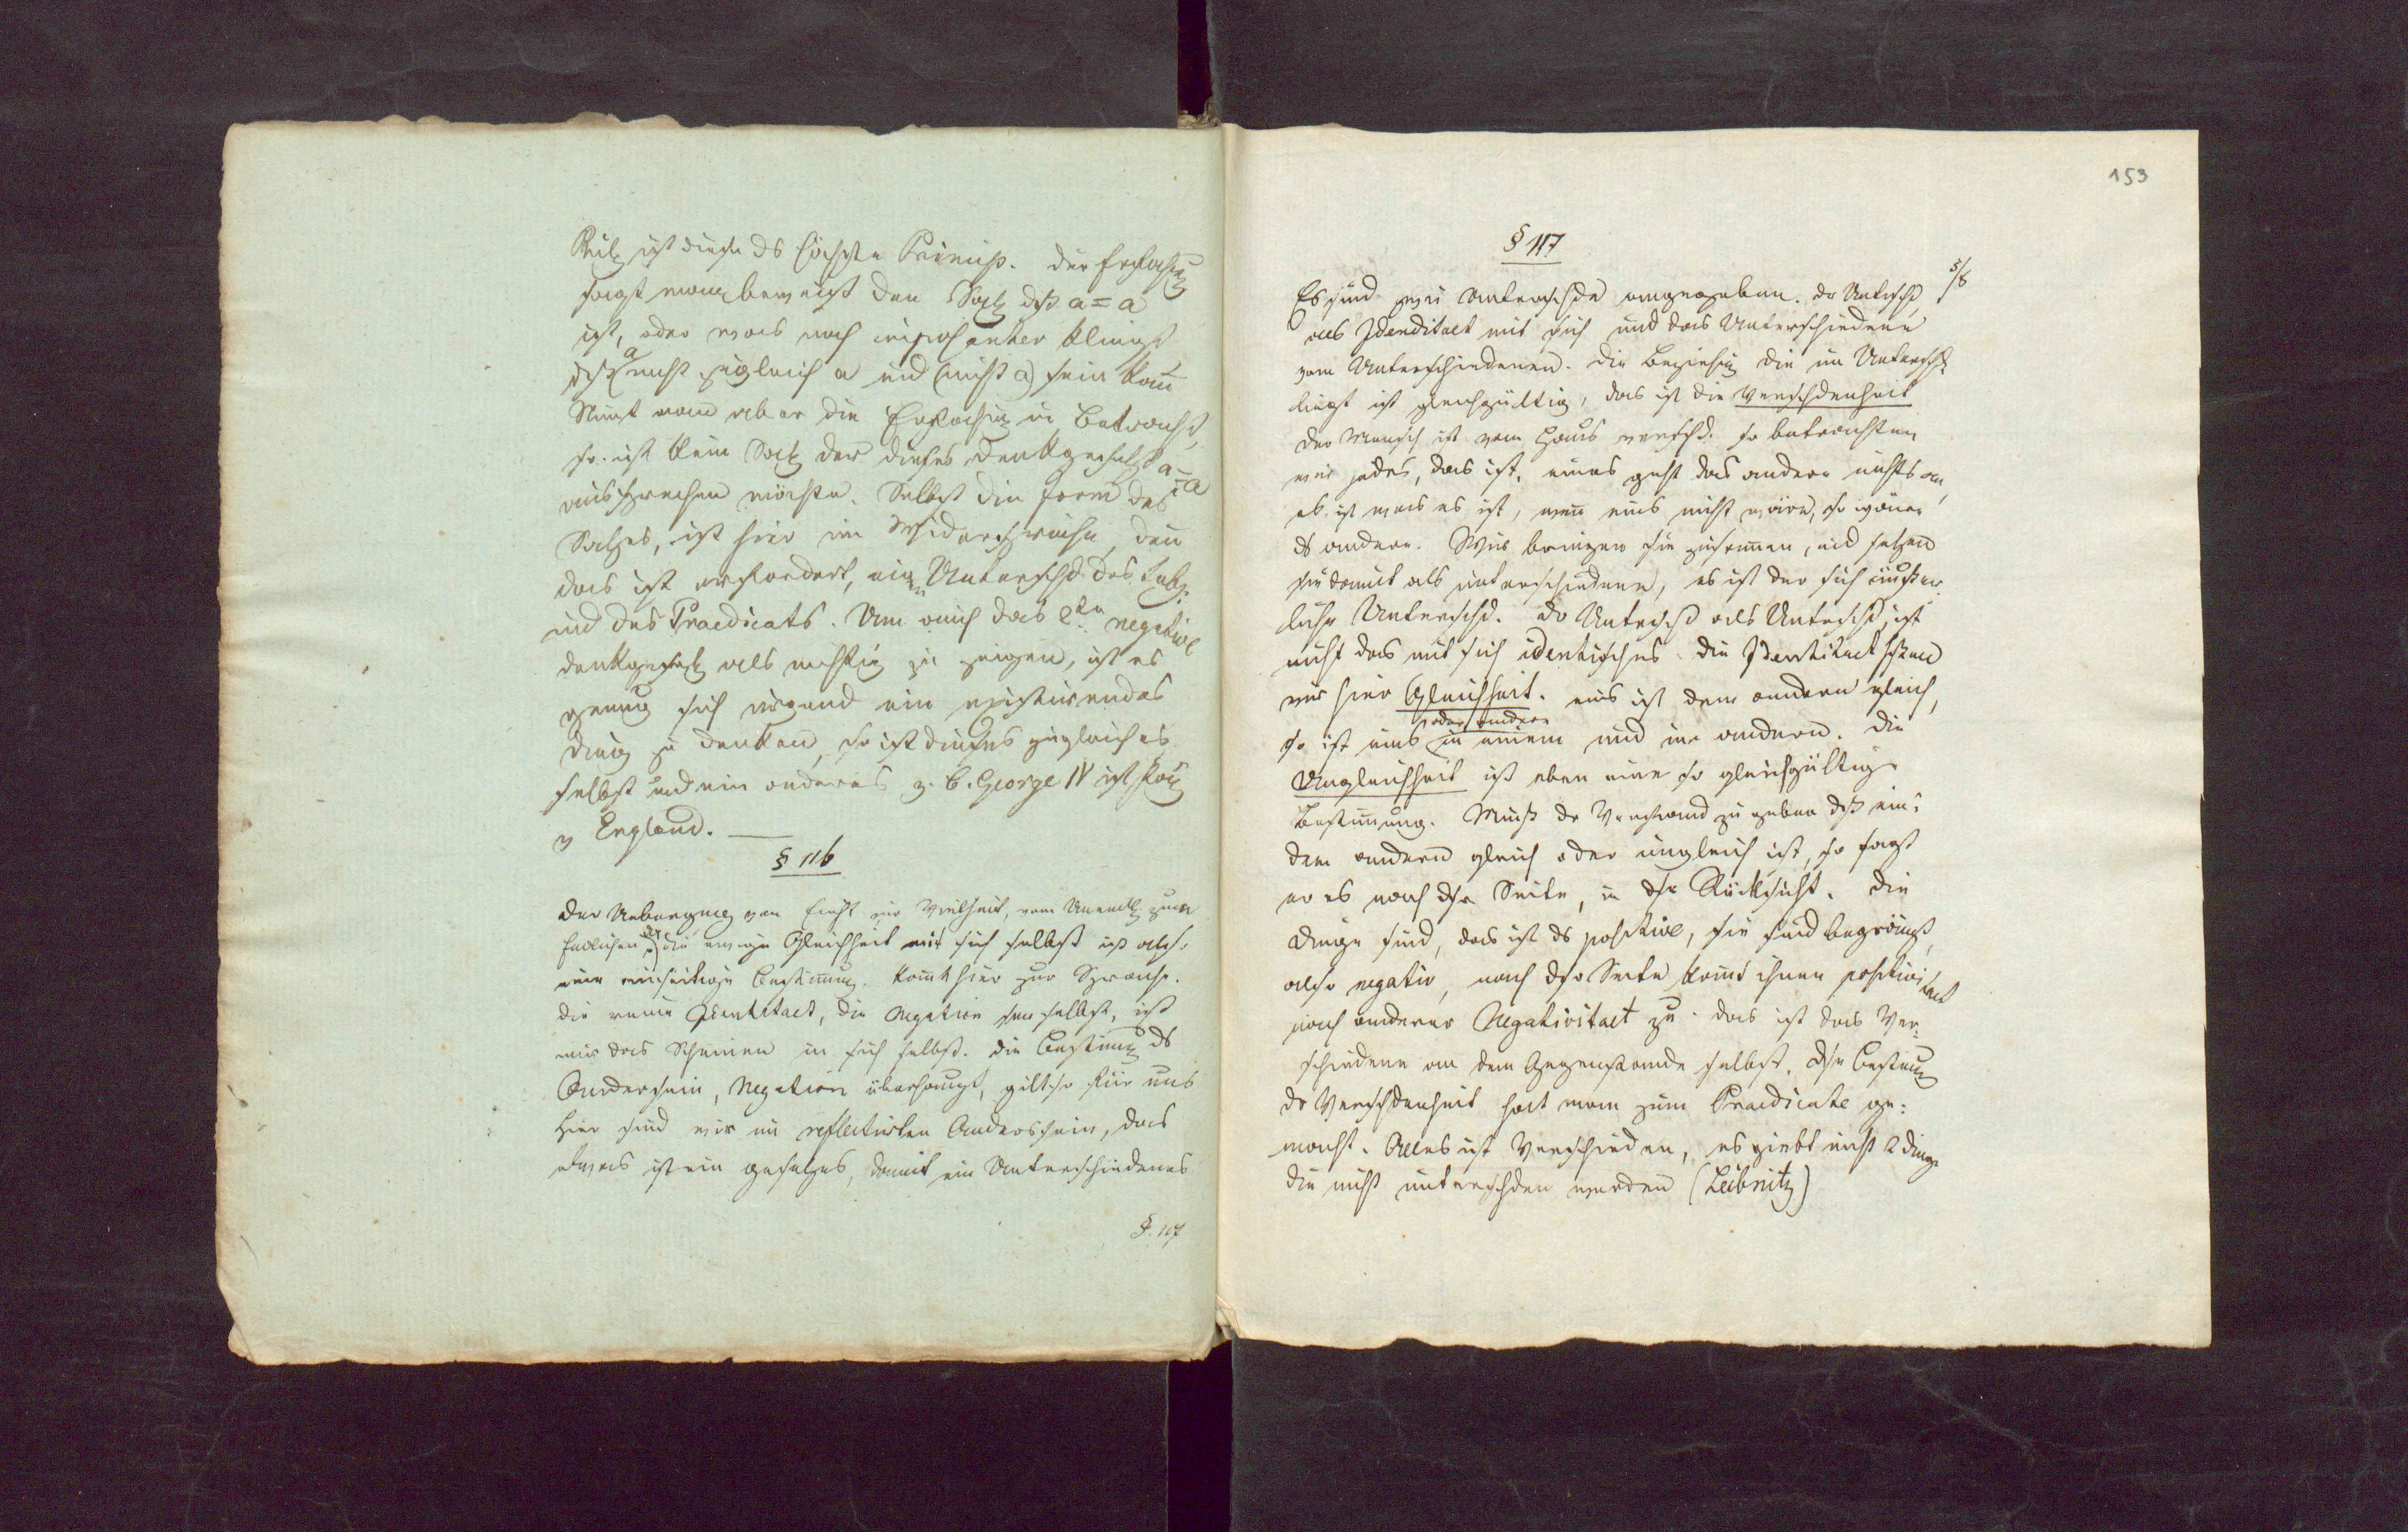 ist dieß ds höchste Princip. Die Erfahrung
sagt man beweist den Satz dß a = a
ist, oder was noch imposanter klingt
dß a nicht zugleich a und (nicht a) sein kann
Nimt man aber die Erfahrung in Betracht,
so ist kein Satz der dieses Denkgesetzt a = a
aussprechen möchte. Selbst die Form des
Satzes, ist hier im Widerspruche, denn
das ist erfordert, ein Unterschd des Subj:
und des Praedicats. Um auch das 2te negative
Denkgesetz als nichtig zu zeigen, ist es
genug sich irgend ein existirendes
Ding zu denken, so ist dieses zugleich es
selbst und ein anderes z. B. George IV ist König
v England. —
§ 116
Der Uebergang von Einht zur Vielheit, vom Unendl. zum
Endlichen, die ewige Gleichheit mit sich selbst ist also
eine einseitige Bestimung. komt hier zur Sprache.
Die reine Identitaet, die Negation ihrer selbst, ist
nur das Scheinen in sich selbst. Die Bestimung ds
Anderssein, Negation überhaupt, gilt für uns
Hier sind wir im reflectirten Anderssein, das
etwas ist ein gesetztes, damit ein Unterschiedenes
§. 117
153
§ 117
5/8
Es sind zwei Unterschde angegeben. Dr Untrschd
als Idenditaet mit sich und das Unterschiedene
vom Unterschiedenen. Die Beziehung die im Unterschd
liegt ist gleichgültig, das ist die Verschdenheit
Der Mensch ist vom Haus verschd. so betrachten
wir jedes, das ist, eines geht das andere nichts an,
es ist was es ist, wenn eins nicht wäre, so wäre
ds andere. Wir bringen sie zusammen, und setzen
sie damit als unterschiedene, es ist der sich äußer
liche Unterschd. Dr Untrschd als Untrschd, ist
nicht das mit sich identisches. Die Identitaet
wir hier Gleichheit. eins ist dem andern gleich,
oder andere
so ist eins in einem und im andern. Die
Ungleichheit ist eben eine so gleichgültige
Bestimmung. Muß dr Verstand zugeben dß eins
dem andern gleich oder ungleich ist, so sagt
er es nach dsr Seite, in dsr Rücksicht. Die
Dinge sind, das ist ds positive, sie sind begränzt,
also negativ, nach dsr Seite komt ihnen positivitaet
nach anderer Negativitaet zu. das ist das Ver-
schiedene an dem Gegenstande selbst. Dse Bestimmung
dr Verschdenheit hat man zum Praedicate ge:
macht. Alles ist Verschieden, es giebt nicht 2 Dinge
die nicht unterschden werden (Leibnitz)